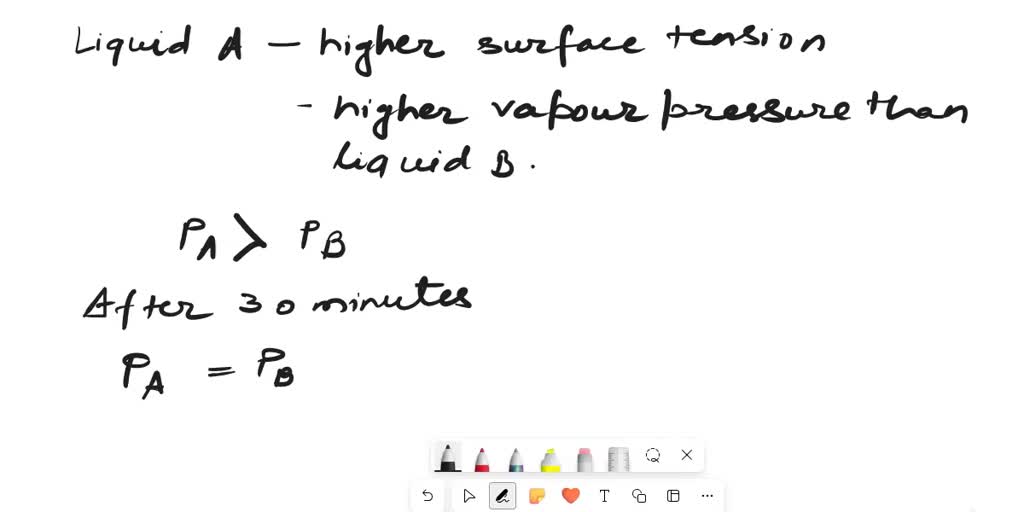 Liquid A - higher surface tension
- higher vapour pressure than
liquid B.
PA > PB
After 30 minutes
PA = PB
T